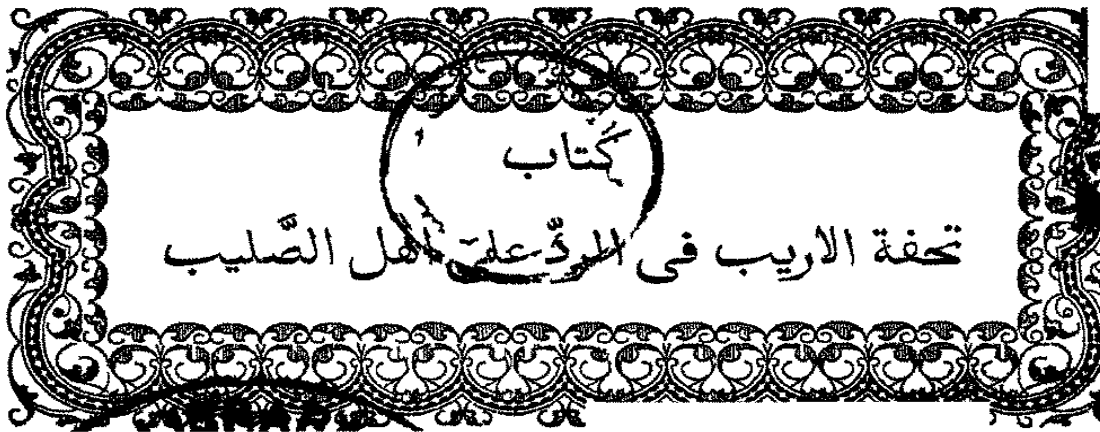 كتاب
تحفة الاريب فى الردّ على اهل الصَّليب